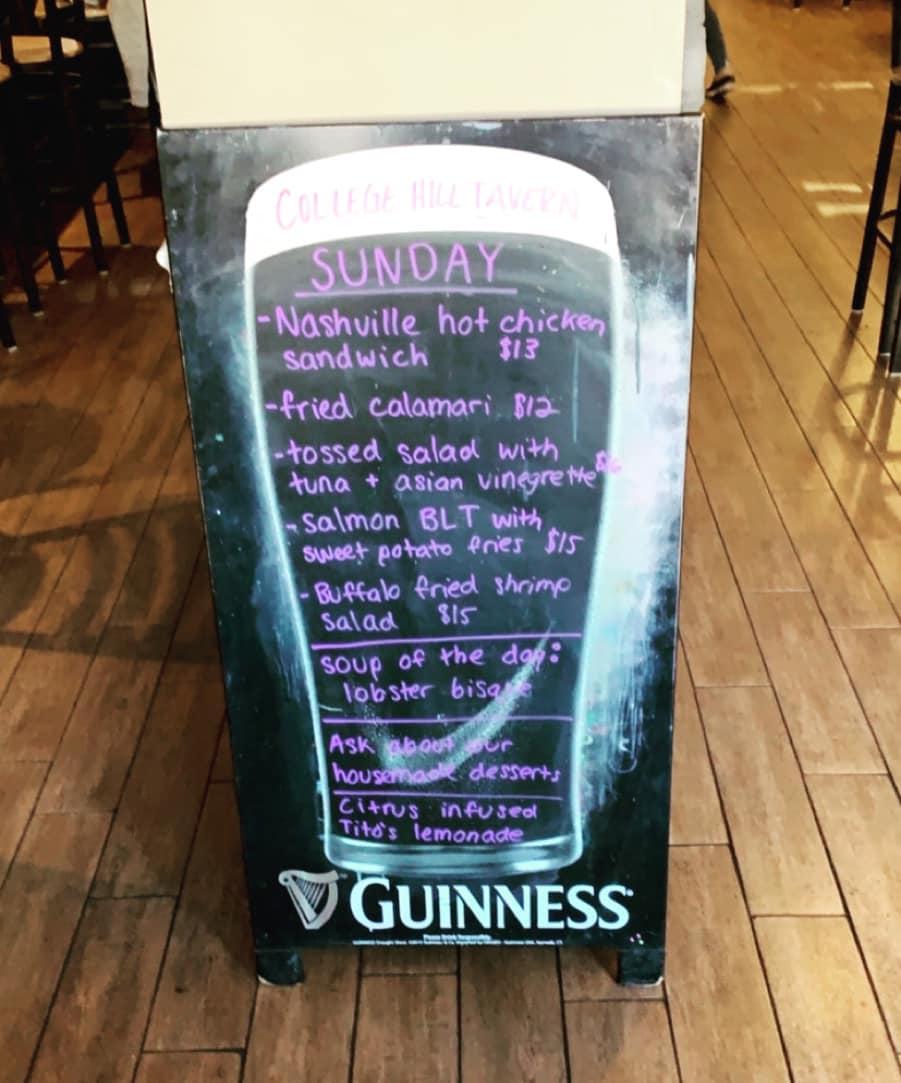 COLLEGE HILL TAVERN
SUNDAY
-Nashville hot chicken
sandwich $13
-fried calamari $12
-tossed salad with
tuna + asian vinegrette $6
-Salmon BLT with
sweet potato fries $15
-Buffalo fried shrimp
salad $15
soup of the day:
lobster bisque
Ask about our
housemade desserts
Citrus infused
Tito's lemonade
GUINNESS
Please Drink Responsibly.